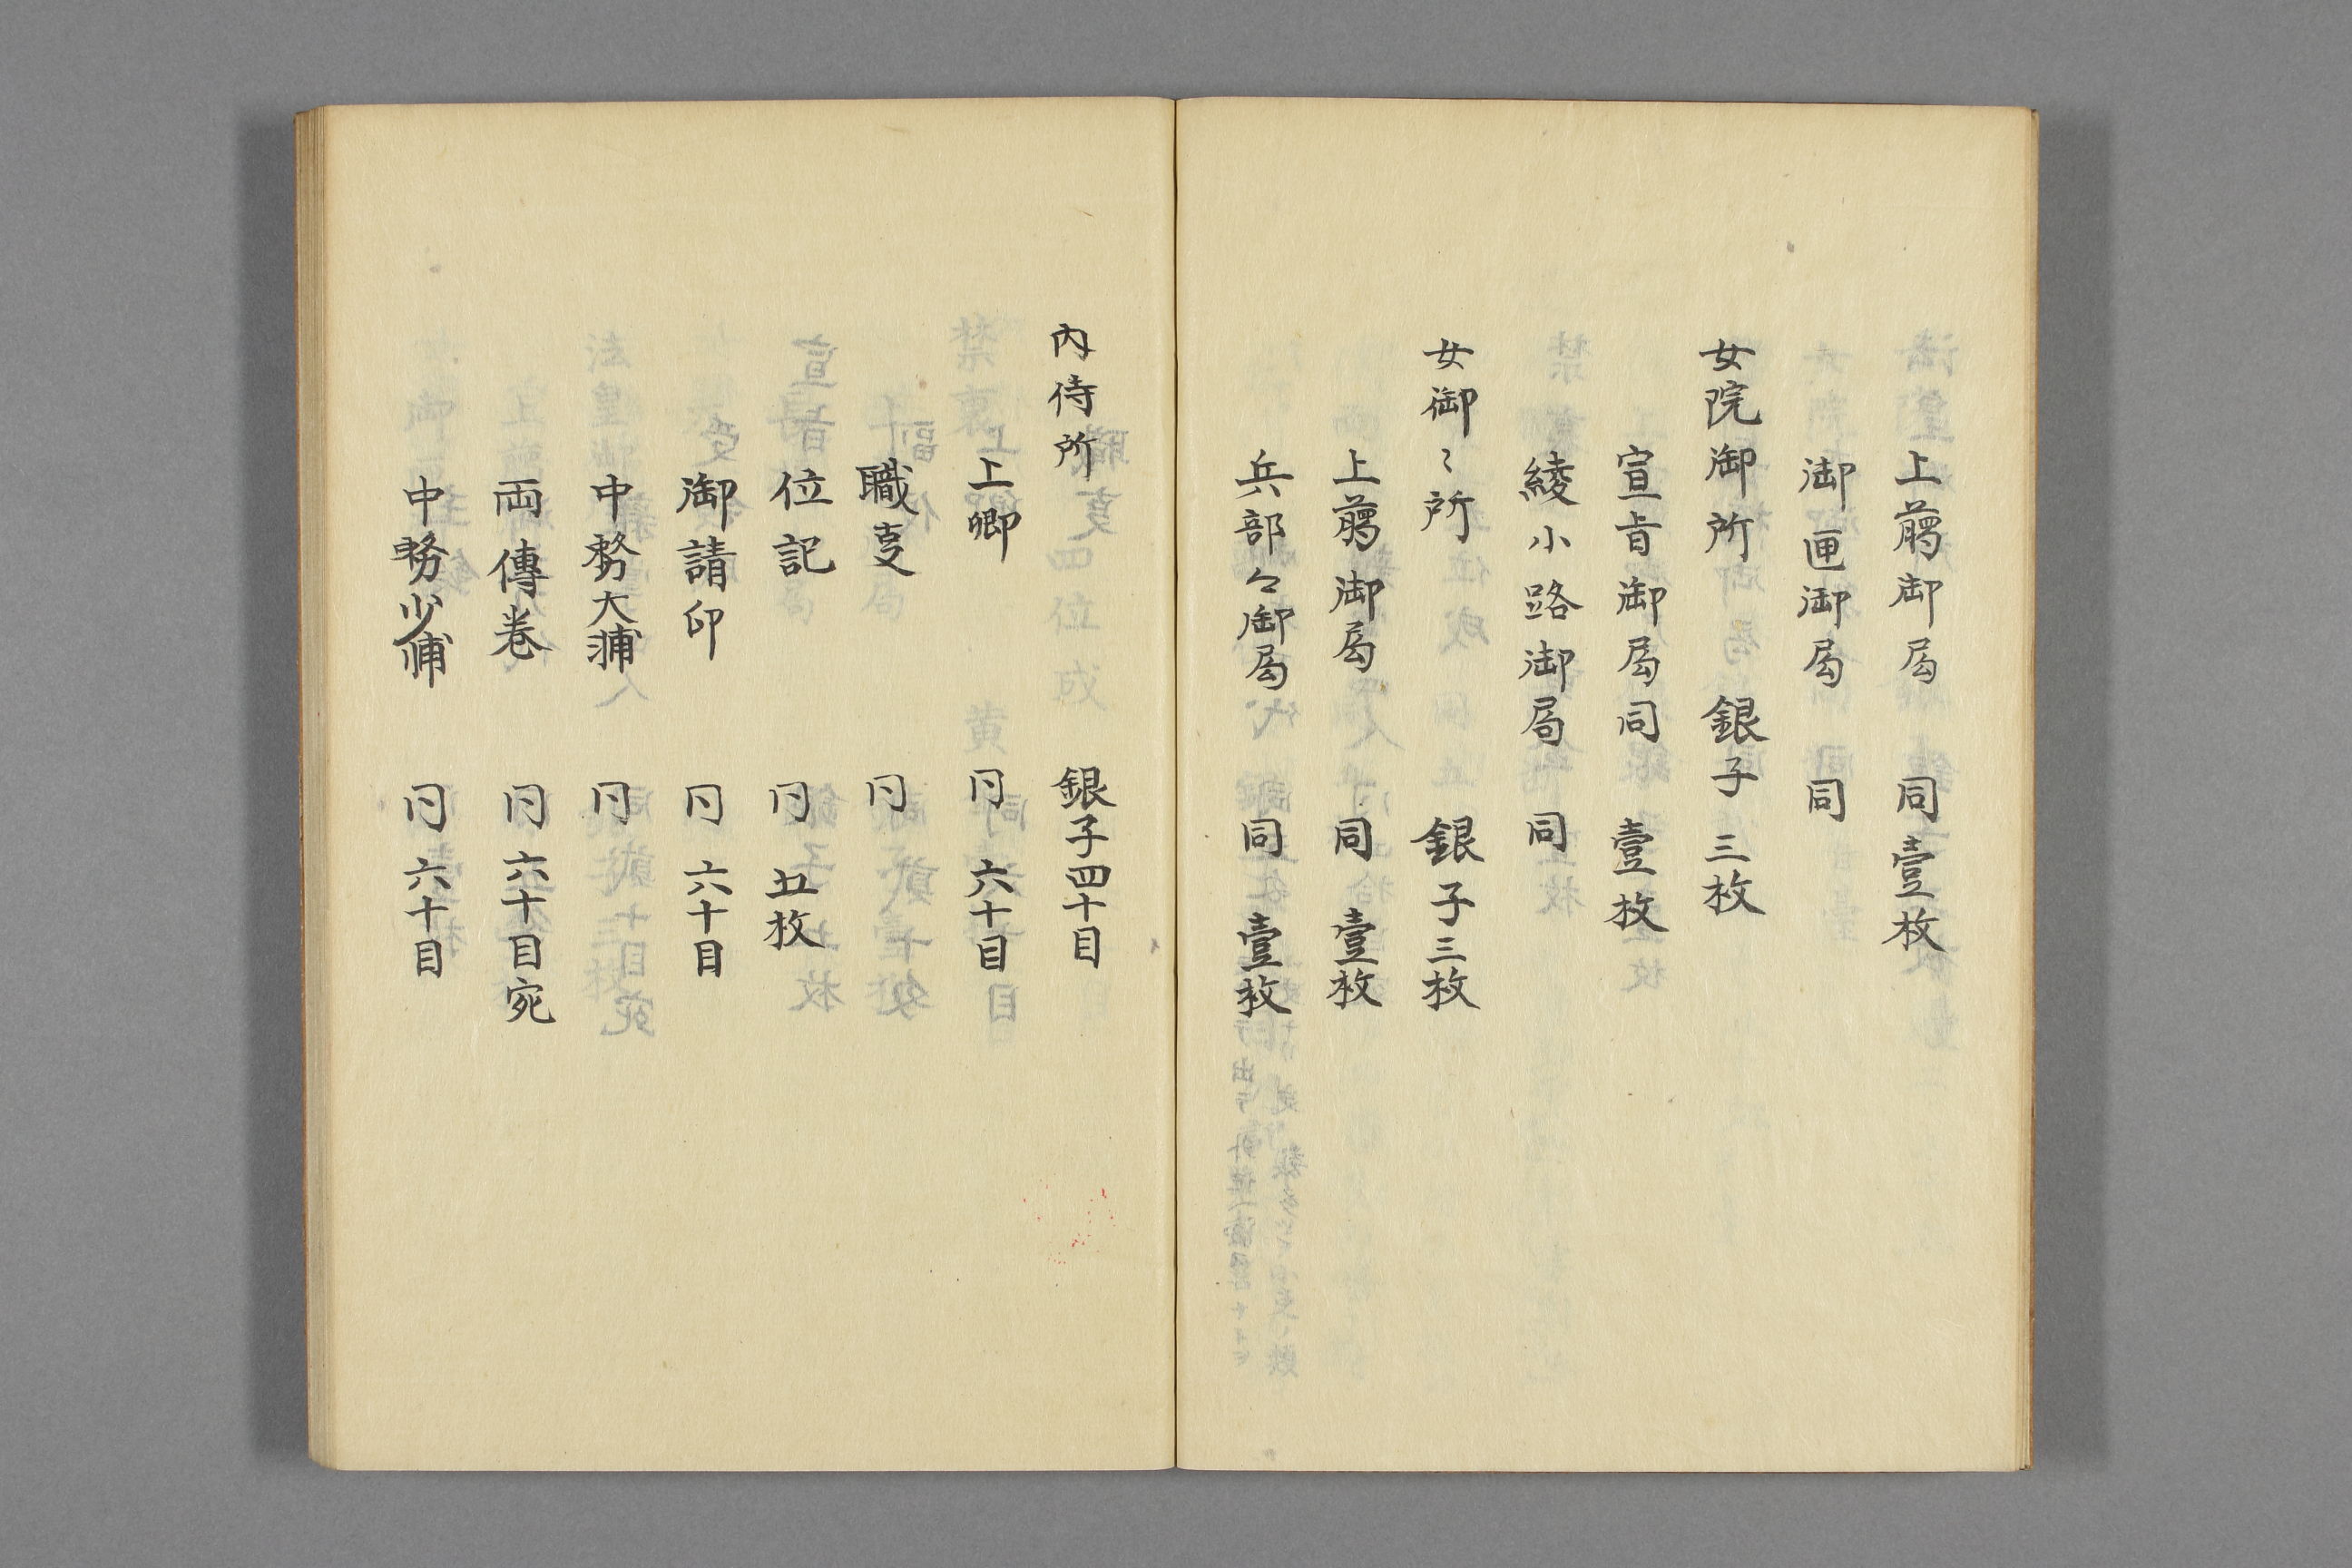 上﨟御局 同壹枚
御匣御局 同
女院御所 銀子三枚
宣旨御局同 壹枚
綾小路御局 同
女御〻所 銀子三枚
上﨟御局 同 壹枚
兵部々御局 同 壹枚
内侍所 銀子四十目
上卿 同 六十目
職事 同
位記 同 五枚
御請印 同 六十目
中務大輔 同
両傳巻 同 六十目宛
中務少輔 同 六十目